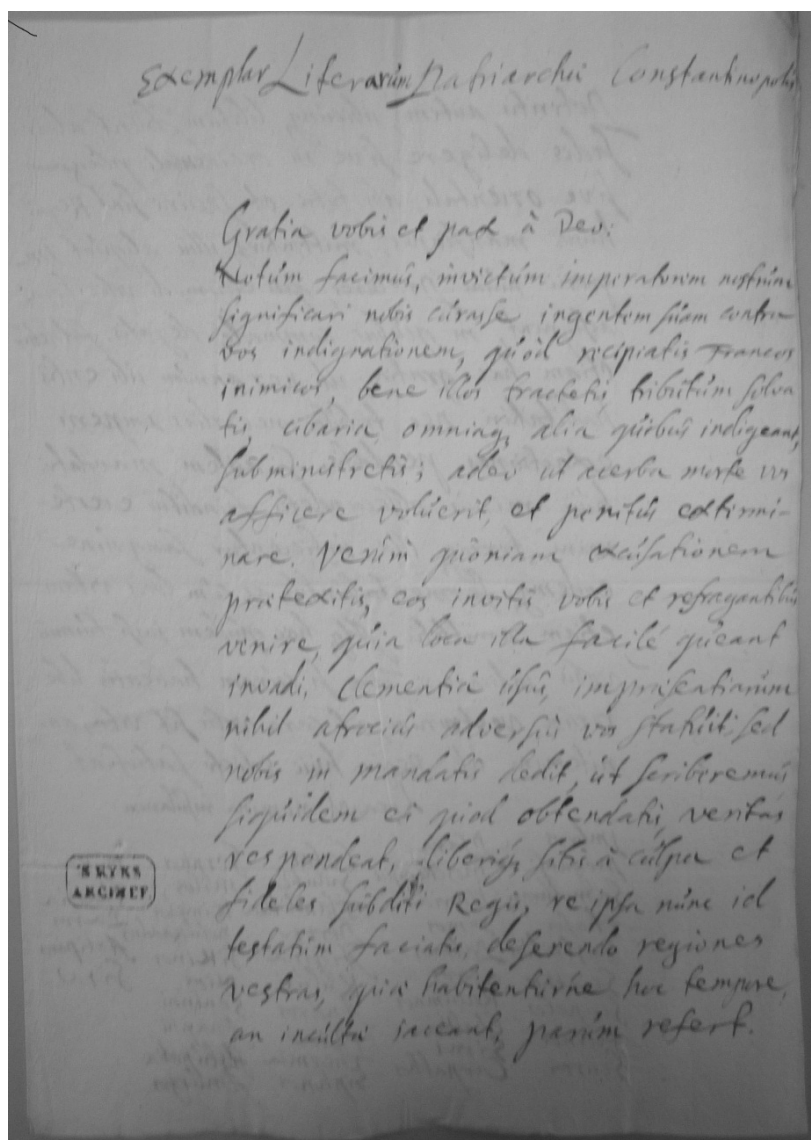 Exemplar Literarum Patriarchæ Constantinopolis
Gratia vobis et pax à Deo:
Notum facimus, invictum imperatorem nostrum
significari nobis curasse ingentem suam contra
vos indignationem, quòd recipiatis Francos
inimicos, bene illos tractetis tributum solva
tis, cibaria, omniaq, alia quibus indigeant,
subministretis; adeo ut acerba morte vos
afficere voluerit, et penitus extermi-
nare. Verum quoniam excusationem
prætexitis, eos invitis vobis et refragantibus
venire, quia loca illa facilé queant
invadi, Clementiâ usus, impræsentiarum
nihil atrocius adversus vos statuit, sed
nobis in mandatis dedit, ut scriberemus
siquidem ei quod obtendatis veritas
respondeat, liberiq, sitis à culpa et
fideles subditi Regis, re ipsa nunc id
testatum faciatis, deserendo regiones
vestras, quæ habitenturne hoc tempore,
an incultæ jaceant, parum refert.
'S RYKS
ARCHIEF